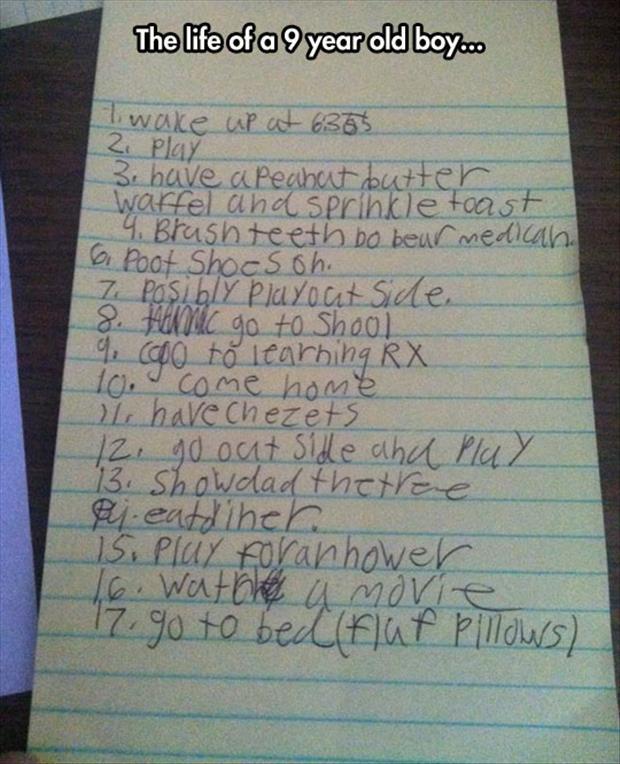 The life of a 9 year old boy...
1. wake up at 6:35
2. Play
3. have a peanut butter
waffel and sprinkle toast
4. Brush teeth bo beur medican.
6. Poot Shoes on.
7. Posibly Play out Side.
8. go to Shool
9. go to learning RX
10. come home
11. have chezets
12. go out Side and Play
13. Show dad the tree
eat diner.
15. Play for an hower
16. watch a movie
17. go to bed (fluf Pillows)